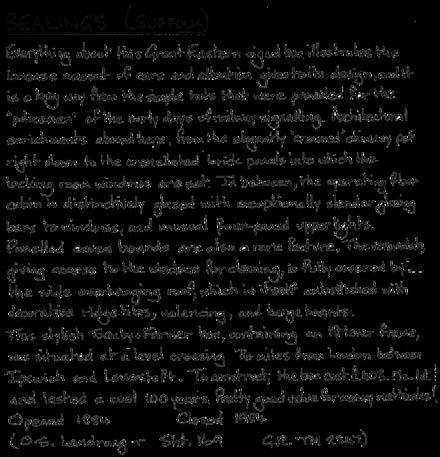 BEALINGS (SUFFOLK)
Everything about this Great Eastern signal box illustrates the
immense amount of care and attention given to its design, and it
is a long way from the simple huts that were provided for the
"policemen" of the early days of railway signalling. Architectural
enrichments abound here, from the elegantly "crowned" chimney pot
right down to the crenellated brick panels into which the
locking room windows are set. In between, the operating floor
cabin is distinctively glazed with exceptionally slender glazing
bars to windows, and unusual four-paned upper lights.
Panelled eaves boards are also a rare feature. The
giving access to the windows for cleaning, is fully covered by
the wide overhanging roof, which is itself embellished with
decorative ridge tiles, valancing, and barge boards.
This stylish Saxby + Farmer box, containing an 18 lever frame,
was situated at a level crossing 76 miles from London between
Ipswich and Lowestoft. To construct, the box cost
and lasted a cool 100 years. Pretty good value for money methinks!
Opened 1884 Closed 1984
(O.S. Landranger Sht. 169 G.R. TM